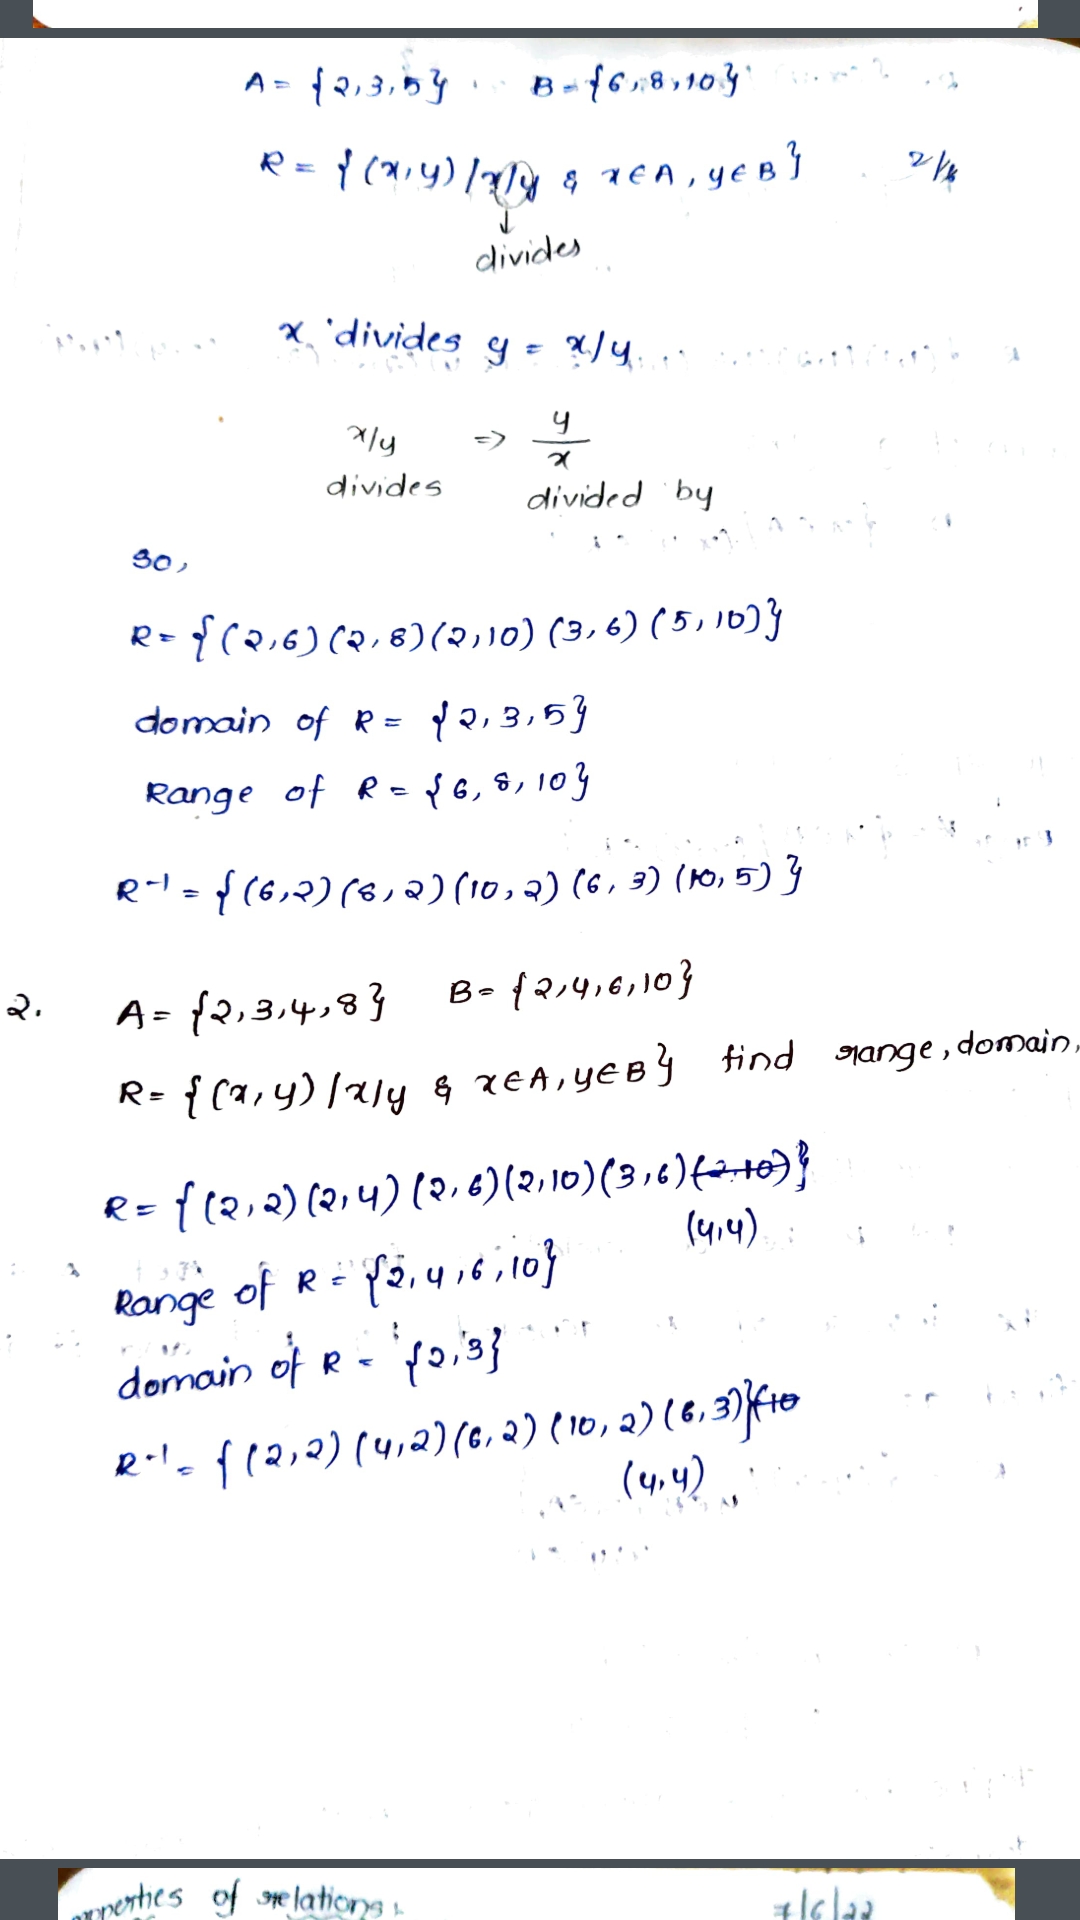 A = {2,3,5} B = {6,8,10}
R = {(x,y) / x/y & x∈A, y∈B}
↓
divides
x divides y = x/y
x/y => y/x
divides divided by
so,
R = {(2,6) (2,8) (2,10) (3,6) (5,10)}
domain of R = {2,3,5}
Range of R = {6,8,10}
R⁻¹ = {(6,2) (8,2) (10,2) (6,3) (10,5)}
2. A = {2,3,4,8} B = {2,4,6,10}
R = {(x,y) / x/y & x∈A, y∈B} find range, domain,
R = {(2,2) (2,4) (2,6) (2,10) (3,6) (2,10)}
(4,4)
Range of R = {2,4,6,10}
domain of R = {2,3}
R⁻¹ = {(2,2) (4,2) (6,2) (10,2) (6,3)} (10
(4,4)
of relations
7/6/22